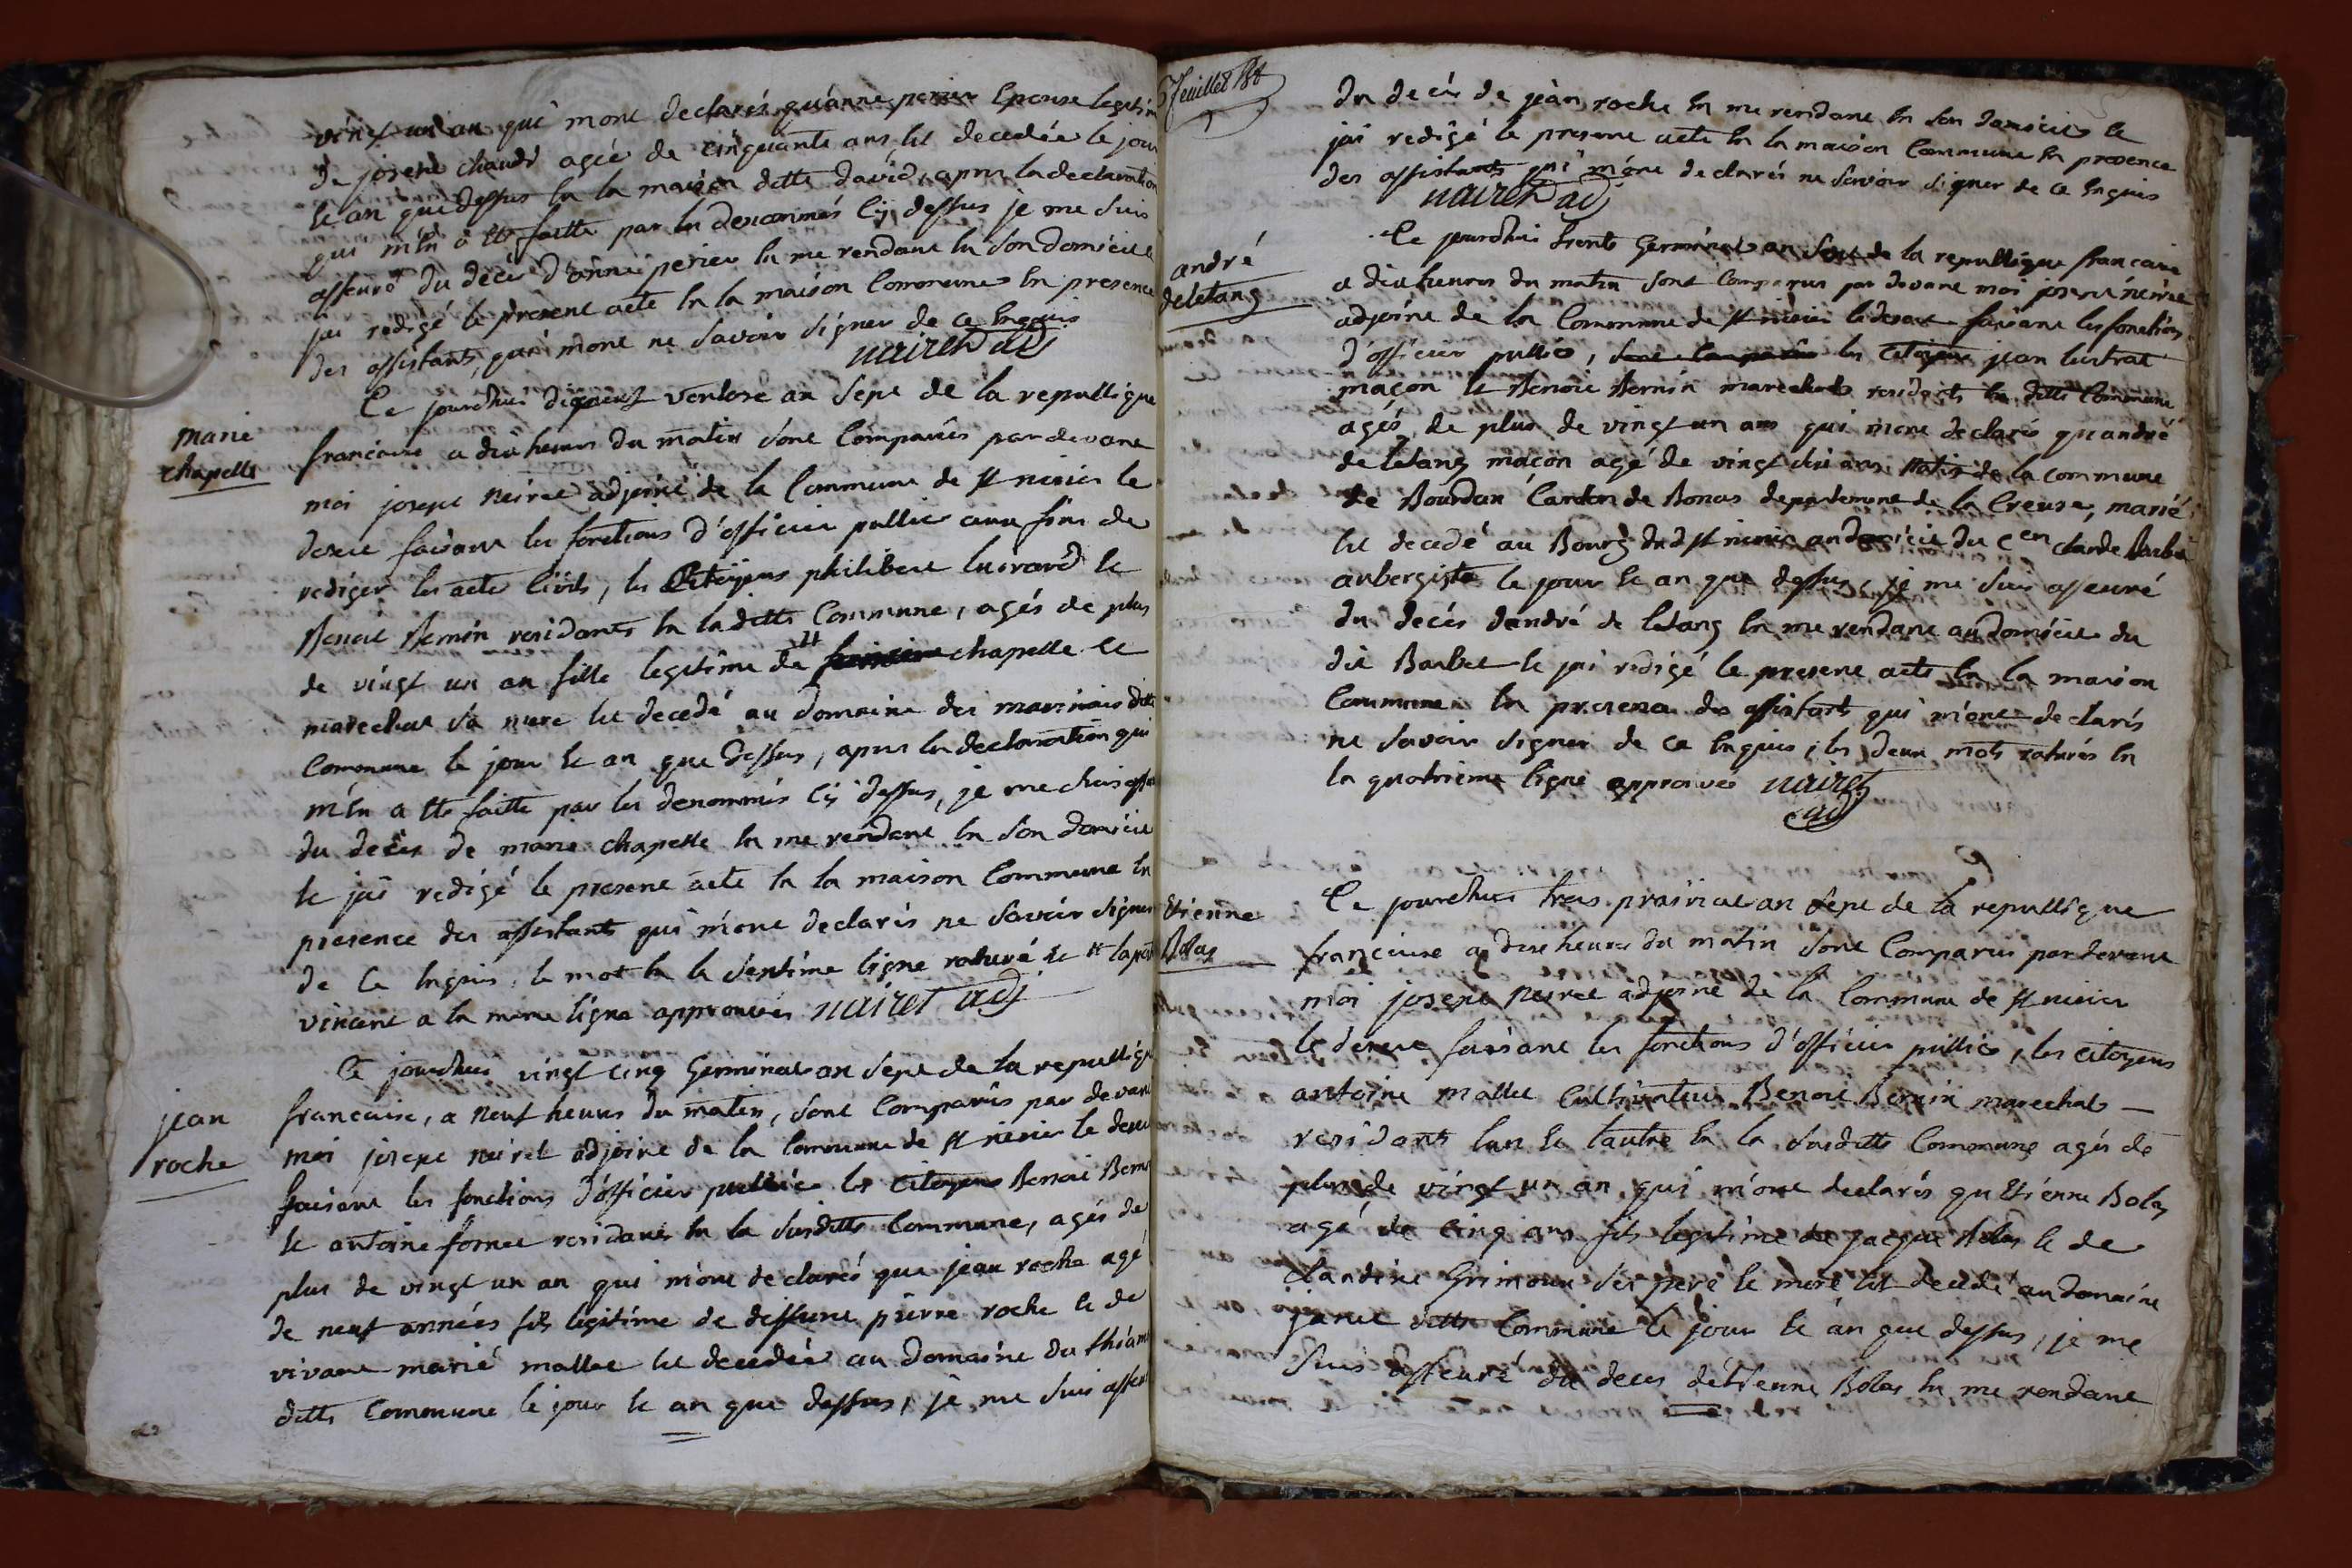 vingt un an qui mont declarés qu'anne perier Epouse legiti
de joseph chaudi agée de cinquante ans, Est decedée le jour
Et an que dessus En la maison ditte david, apres la declaration
qui m'En a Eté faitte par les denommés Cy dessus je me suis
asseuré du decés d'anne perier En me rendant En son domicile
jai redigé le present acte En la maison Commune En presence
des assistants, qui mont ne savoir signer de ce Enquis
nairet adj
marie
chapelle
Ce jourdhui dixneuf ventose an sept de la republique
francaise a dix heures du matin sont Comparûs pardevant
moi josept neiret adjoint de la Commune de st nisier le
desert faisant les fonctions d'officier public aux fins de
rediger les acte Civils, les Citoyens philibert Et
Benoit Bernin residants En laditte Commune, agés de plus
de vingt un an fille legitime de # chapelle Et
marechal sa mere Est decedé au domaine des ditte
Commune le jour Et an que dessus, apres la declaration qui
m'En a Eté faitte par les denommés Cy dessus, je me suis asse
du decés de marie chapelle En me rendant En son domicile
Et jai redigé le present acte En la maison Commune En
presence des assistants qui m'ont declarés ne savoir signer
de Ce Enquis, le mot En la septime ligne raturé Et #
vincent a la meme ligne approuvés nairet adj
jean
roche
Ce jourdhui vingt cinq Germinal an sept de la republiq
francaise, a neuf heures du matin, sont Comparûs par devant
moi josept neiret adjoint de la Commune de st nisier le desert
faisant les fonctions d'officier public les citoyens Benoit Bern
Et antoine residants En la susditte Commune, agés de
plus de vingt un an qui m'ont declarés que jean roche agé
de neuf années fils legitime de deffunt pierre roche Et de
vivant marié mallet Est decedée au domaine du
ditte Commune le jour Et an que dessus, je me suis asseu
feuillet
du decés de jean roche En me rendant En son domicile Et
jai redigé le present acte En la maison Commune En presence
des assistants qui m'ont declarés ne savoir signer de ce Enquis
nairet adj
andré
deletang
Ce jourdhui trente Germinal an sept de la republique francaise
a dix heures du matin sont Comparus par devant moi josept neiret
adjoint de la Commune de st nisier le desert faisant les fonctions
d'officier public, sont Comparûs les Citoyens jean lestrat
maçon Et Benoit Bernin marechal residants En ditte Commune
agés de plus de vingt un ans qui mont declarés qu'andré
de letang maçon agé de vingt ans natif de la commune
de Bourdan Canton de Bonas departement de la Creuse, marié
Est decedé au Bourg dud st nisier au domicile du Cen claude Barbet
aubergiste le jour Et an que dessus, je me suis asseuré
du decés dandré de letang En me rendant au domicile du
dit Barbet Et jai redigé le present acte En la maison
Commune En presence des assistants qui m'ont declarés
ne savoir signer de ce Enquis, les deux mots raturés En
la quatrieme ligne approuvés nairet
adj
Etienne
Bolas
Ce jourdhui trois prairial an sept de la republique
francaise a dix heures du matin sont Comparus par devant
moi josept neiret adjoint de la Commune de st nisier
le desert faisant les fonctions d'officier public, les citoyens
antoine mallet Cultivateur Benoit Bernin marechal —
residants lun Et lautre En la susditte Commune agés de
plus de vingt un an qui m'ont declarés qu'Etienne Bolas
agé de cinq ans fils legitime de jacque Bolas Et de
claudine Grimoux ses pere Et mere Est decedé au domaine
ditte Commune le jour Et an que dessus, je me
suis asseuré du deces d'Etienne Bolas En me rendant